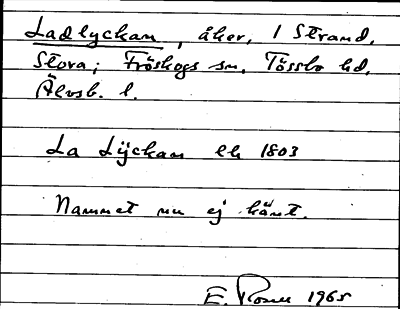 Ladlyckan, åker, 1 Strand,
Stora; Fröskogs sn, Tössbo hd,
Älvsb. l.
La Lÿckan lh 1803
Namnet nu ej känt.
E. Rosell 1965